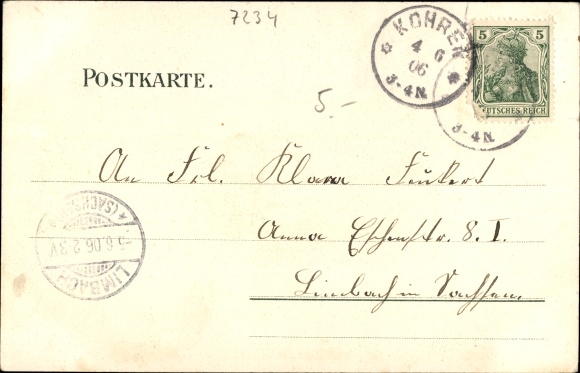 7234
KOHREN
4 6
06
3-4N.
5
5
DEUTSCHES REICH
3-4N.
POSTKARTE.
5.-
An Frl. Klara
Anna Eschenstr. 8. I.
Limbach in Sachsen.
(SACHSEN)
5.6.06.2-3V
LIMBACH